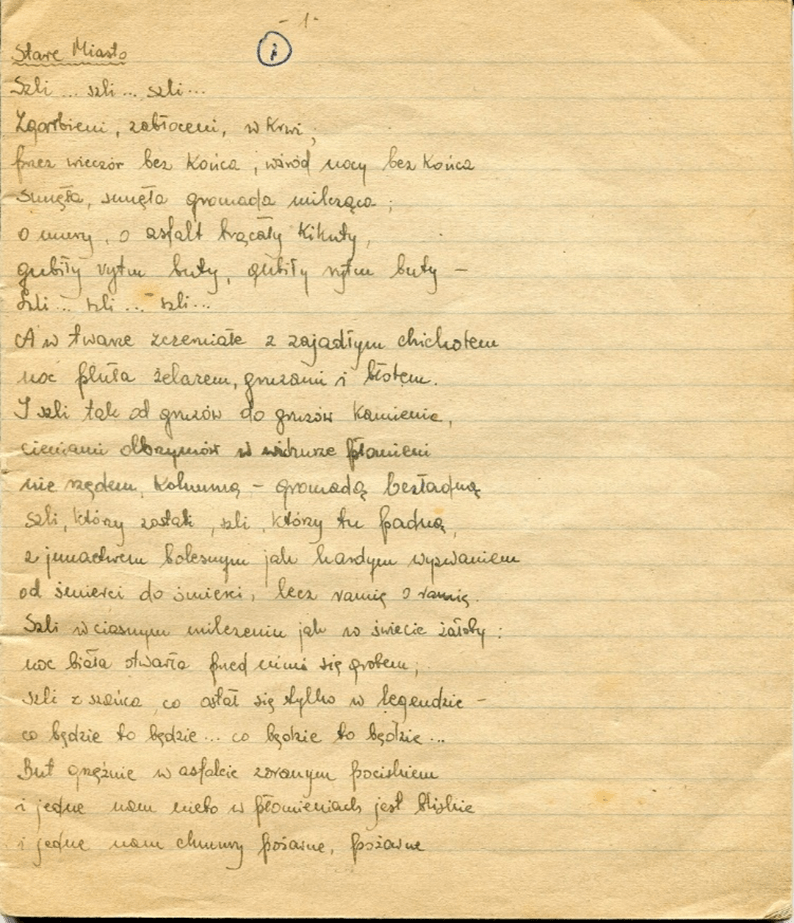 - 1 -
1
Stare Miasto
Szli ... szli ... szli ...
Zgarbieni, zabłoceni, w krwi,
przez wieczór bez końca, wśród nocy bez końca
sunęła, sunęła gromada milcząca;
o mury, o asfalt trącały kikuty,
gubiły rytm buty, gubiły rytm buty -
Szli ... szli ... szli ...
A w twarze zczerniałe z zajadłym chichotem
noc pluła żelazem, gruzami i błotem.
I szli tak od gruzów do gruzów kamienie,
cieniami olbrzymów w wichurze płomieni
nie rzędem, kolumną - gromadą bezładną
szli, którzy zostali, szli, którzy tu padną,
z junactwem bolesnym jak hardym wyzwaniem
od śmierci do śmierci, lecz ramię o ramię.
Szli w ciasnym milczeniu jak w świecie żałoby:
noc biała otwarła przed nimi się grobem;
szli z szańca, co ostał się tylko w legendzie -
co będzie to będzie ... co będzie to będzie ...
But grzęźnie w asfalcie zoranym pociskiem
i jedne nam niebo w płomieniach jest bliskie
i jedne nam chmury pożarne, pożarne